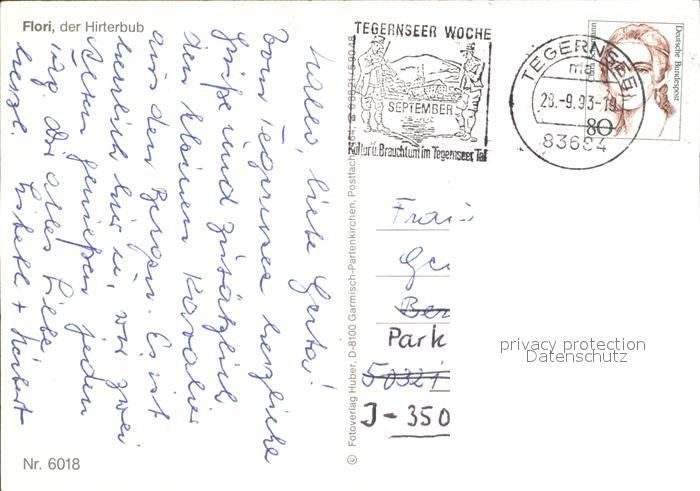 Flori, der Hirterbub
Hallo, liebe Gerta!
Vom Tegernsee herzliche
Grüße und zusätzlich
den kleinen Kavalier
aus den Bergen. Es ist
herrlich hier u. wir zwei
Alten genießen jeden
Tag. Dir alles Liebe
herzl. Liesbeth + Herbert
Nr. 6018
© Fotoverlag Huber, D-8100 Garmisch-Partenkirchen, Postfach
TEGERNSEER WOCHE
SEPTEMBER
Kultur u. Brauchtum im Tegernseer Tal
TEGERNSEE
28.-9.93-19
83684
Deutsche Bundespost
80
Frau
Ge
Ber
Park
50321
J-350
privacy protection
Datenschutz